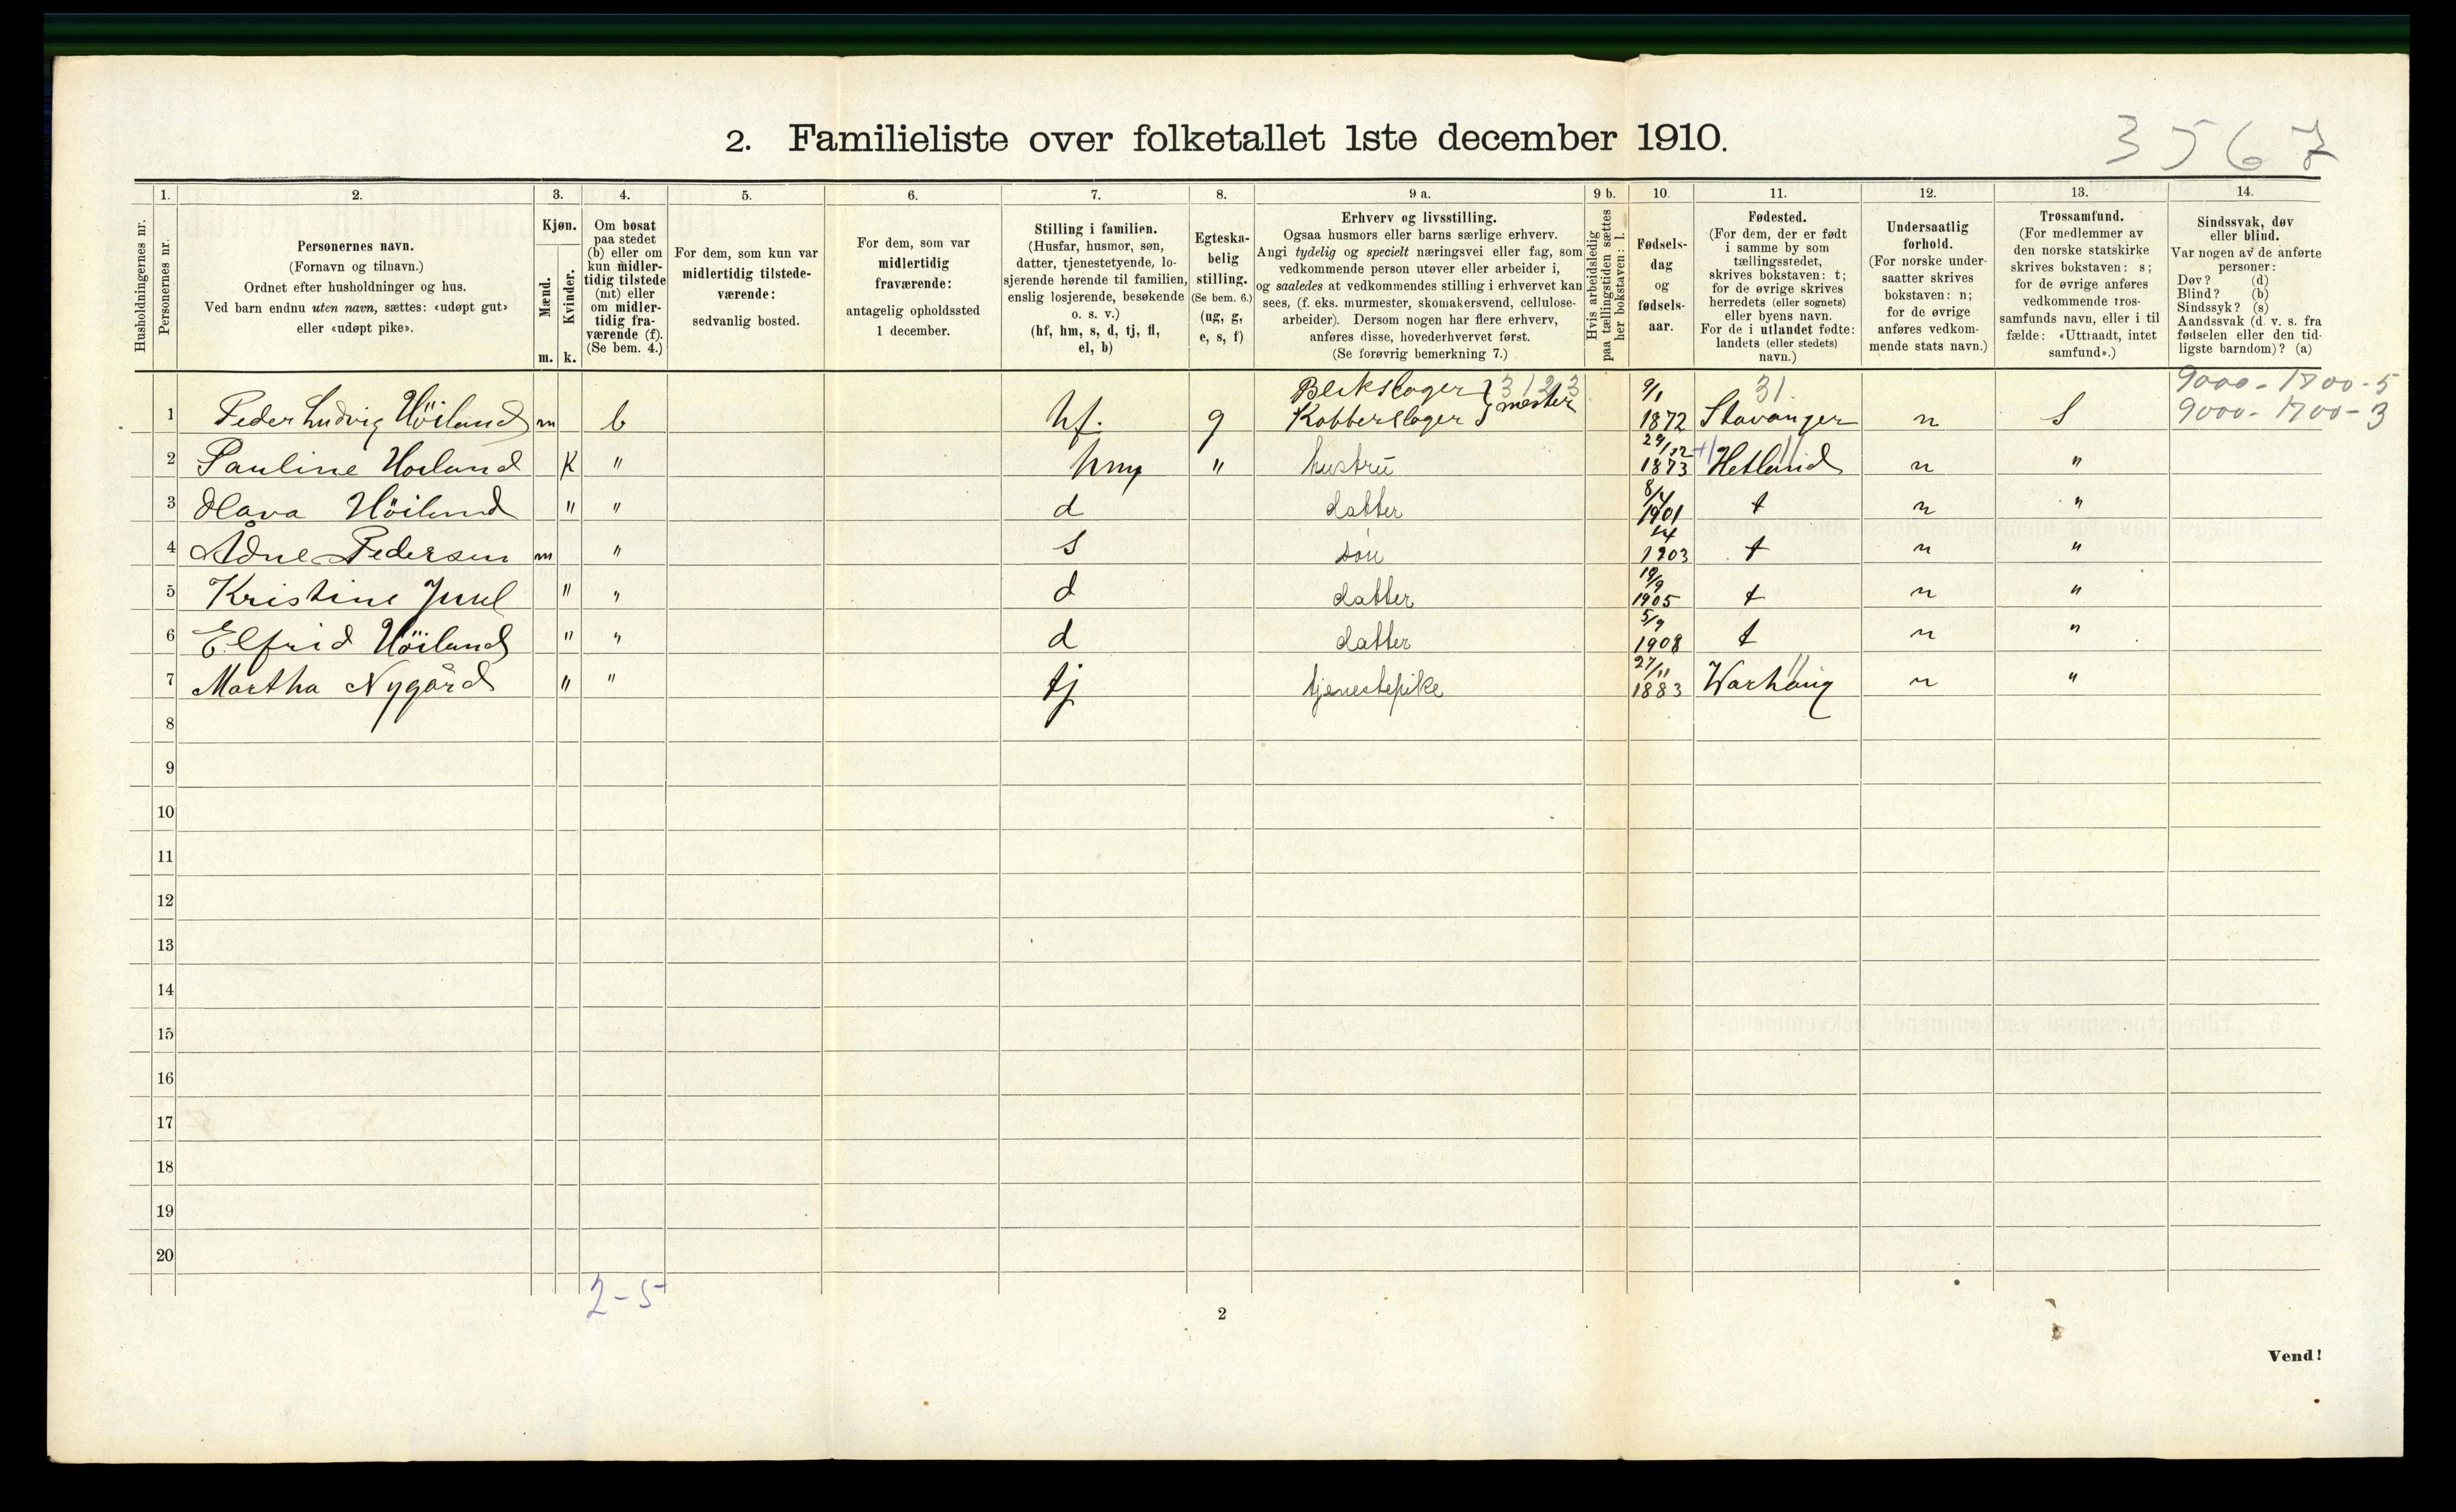 2. Familieliste over folketallet 1ste december 1910.
3567
Husholdningernes nr.
1.
Personernes nr.
2.
Personernes navn.
(Fornavn og tilnavn.)
Ordnet efter husholdninger og hus.
Ved barn endnu uten navn, sættes: «udøpt gut»
eller «udøpt pike».
3.
Kjøn.
Mænd.
Kvinder.
m. k.
4.
Om bosat
paa stedet
(b) eller om
kun midler-
tidig tilstede
(mt) eller
om midler-
tidig fra-
værende (f).
(Se bem. 4.)
5.
For dem, som kun var
midlertidig tilstede-
værende:
sedvanlig bosted.
6.
For dem, som var
midlertidig
fraværende:
antagelig opholdssted
1 december.
7.
Stilling i familien.
(Husfar, husmor, søn,
datter, tjenestetyende, lo-
sjerende hørende til familien,
enslig losjerende, besøkende
o. s. v.)
(hf, hm, s, d, tj, fl,
el, b)
8.
Egteska-
belig
stilling.
(Se bem. 6.)
(ug, g,
e, s, f)
9 a.
Erhverv og livsstilling.
Ogsaa husmors eller barns særlige erhverv.
Angi tydelig og specielt næringsvei eller fag, som
vedkommende person utøver eller arbeider i,
og saaledes at vedkommendes stilling i erhvervet kan
sees, (f. eks. murmester, skomakersvend, cellulose-
arbeider). Dersom nogen har flere erhverv,
anføres disse, hovederhvervet først.
(Se forøvrig bemerkning 7.)
9 b.
Hvis arbeidsledig
paa tællingstiden sættes
her bokstaven: l.
10.
Fødsels-
dag
og
fødsels-
aar.
11.
Fødested.
(For dem, der er født
i samme by som
tællingsstedet,
skrives bokstaven: t;
for de øvrige skrives
herredets (eller sognets)
eller byens navn.
For de i utlandet fødte:
landets (eller stedets)
navn.)
12.
Undersaatlig
forhold.
(For norske under-
saatter skrives
bokstaven: n;
for de øvrige
anføres vedkom-
mende stats navn.)
13.
Trossamfund.
(For medlemmer av
den norske statskirke
skrives bokstaven: s;
for de øvrige anføres
vedkommende tros-
samfunds navn, eller i til
fælde: «Uttraadt, intet
samfund».)
14.
Sindssvak, døv
eller blind.
Var nogen av de anførte
personer:
Døv? (d)
Blind? (b)
Sindssyk? (s)
Aandssvak (d. v. s. fra
fødselen eller den tid-
ligste barndom)? (a)
Blikslager } 3123 9/1 31. 9000-1700-5
1 Peder Ludvig Höiland m b hf. g Kobberslager } mester 1872 Stavanger n S 9000-1700-3
2 Pauline Höiland K " hm " hustru 29/12 1873 Hetland n "
3 Höiland " " d datter 8/4 1901 t n "
4 Ådne Pedersen m " s søn 1903 t n "
5 Kristine Juul " " d datter 19/9 1905 t n "
6 Elfrid Höiland " " d datter 5/9 1908 t n "
7 Martha Nygård " " tj tjenestepike 27/11 1883 Warhaug n "
8
9
10
11
12
13
14
15
16
17
18
19
20
2-5
2
Vend!